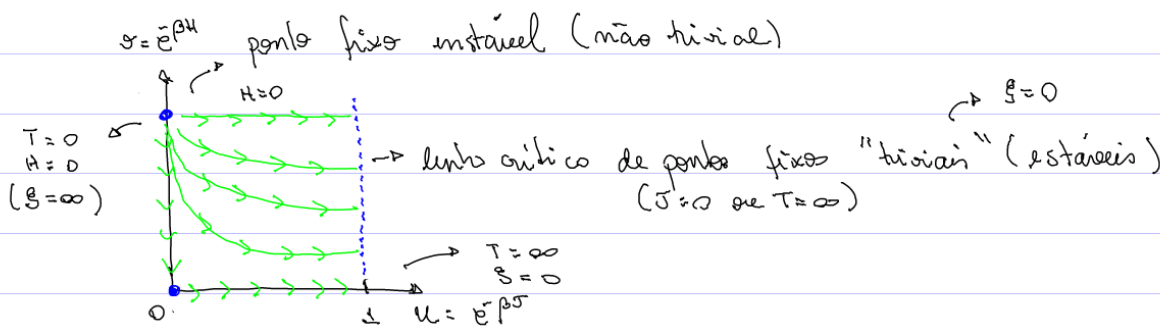 v = e^{-βH} ponto fixo instável (não trivial)
H=0
ξ=0
T=0
H=0
(ξ=∞)
linha crítico de pontos fixos "triviais" (estáveis)
(J=0 ou T=∞)
T=∞
ξ=0
0
1
u = e^{-βJ}